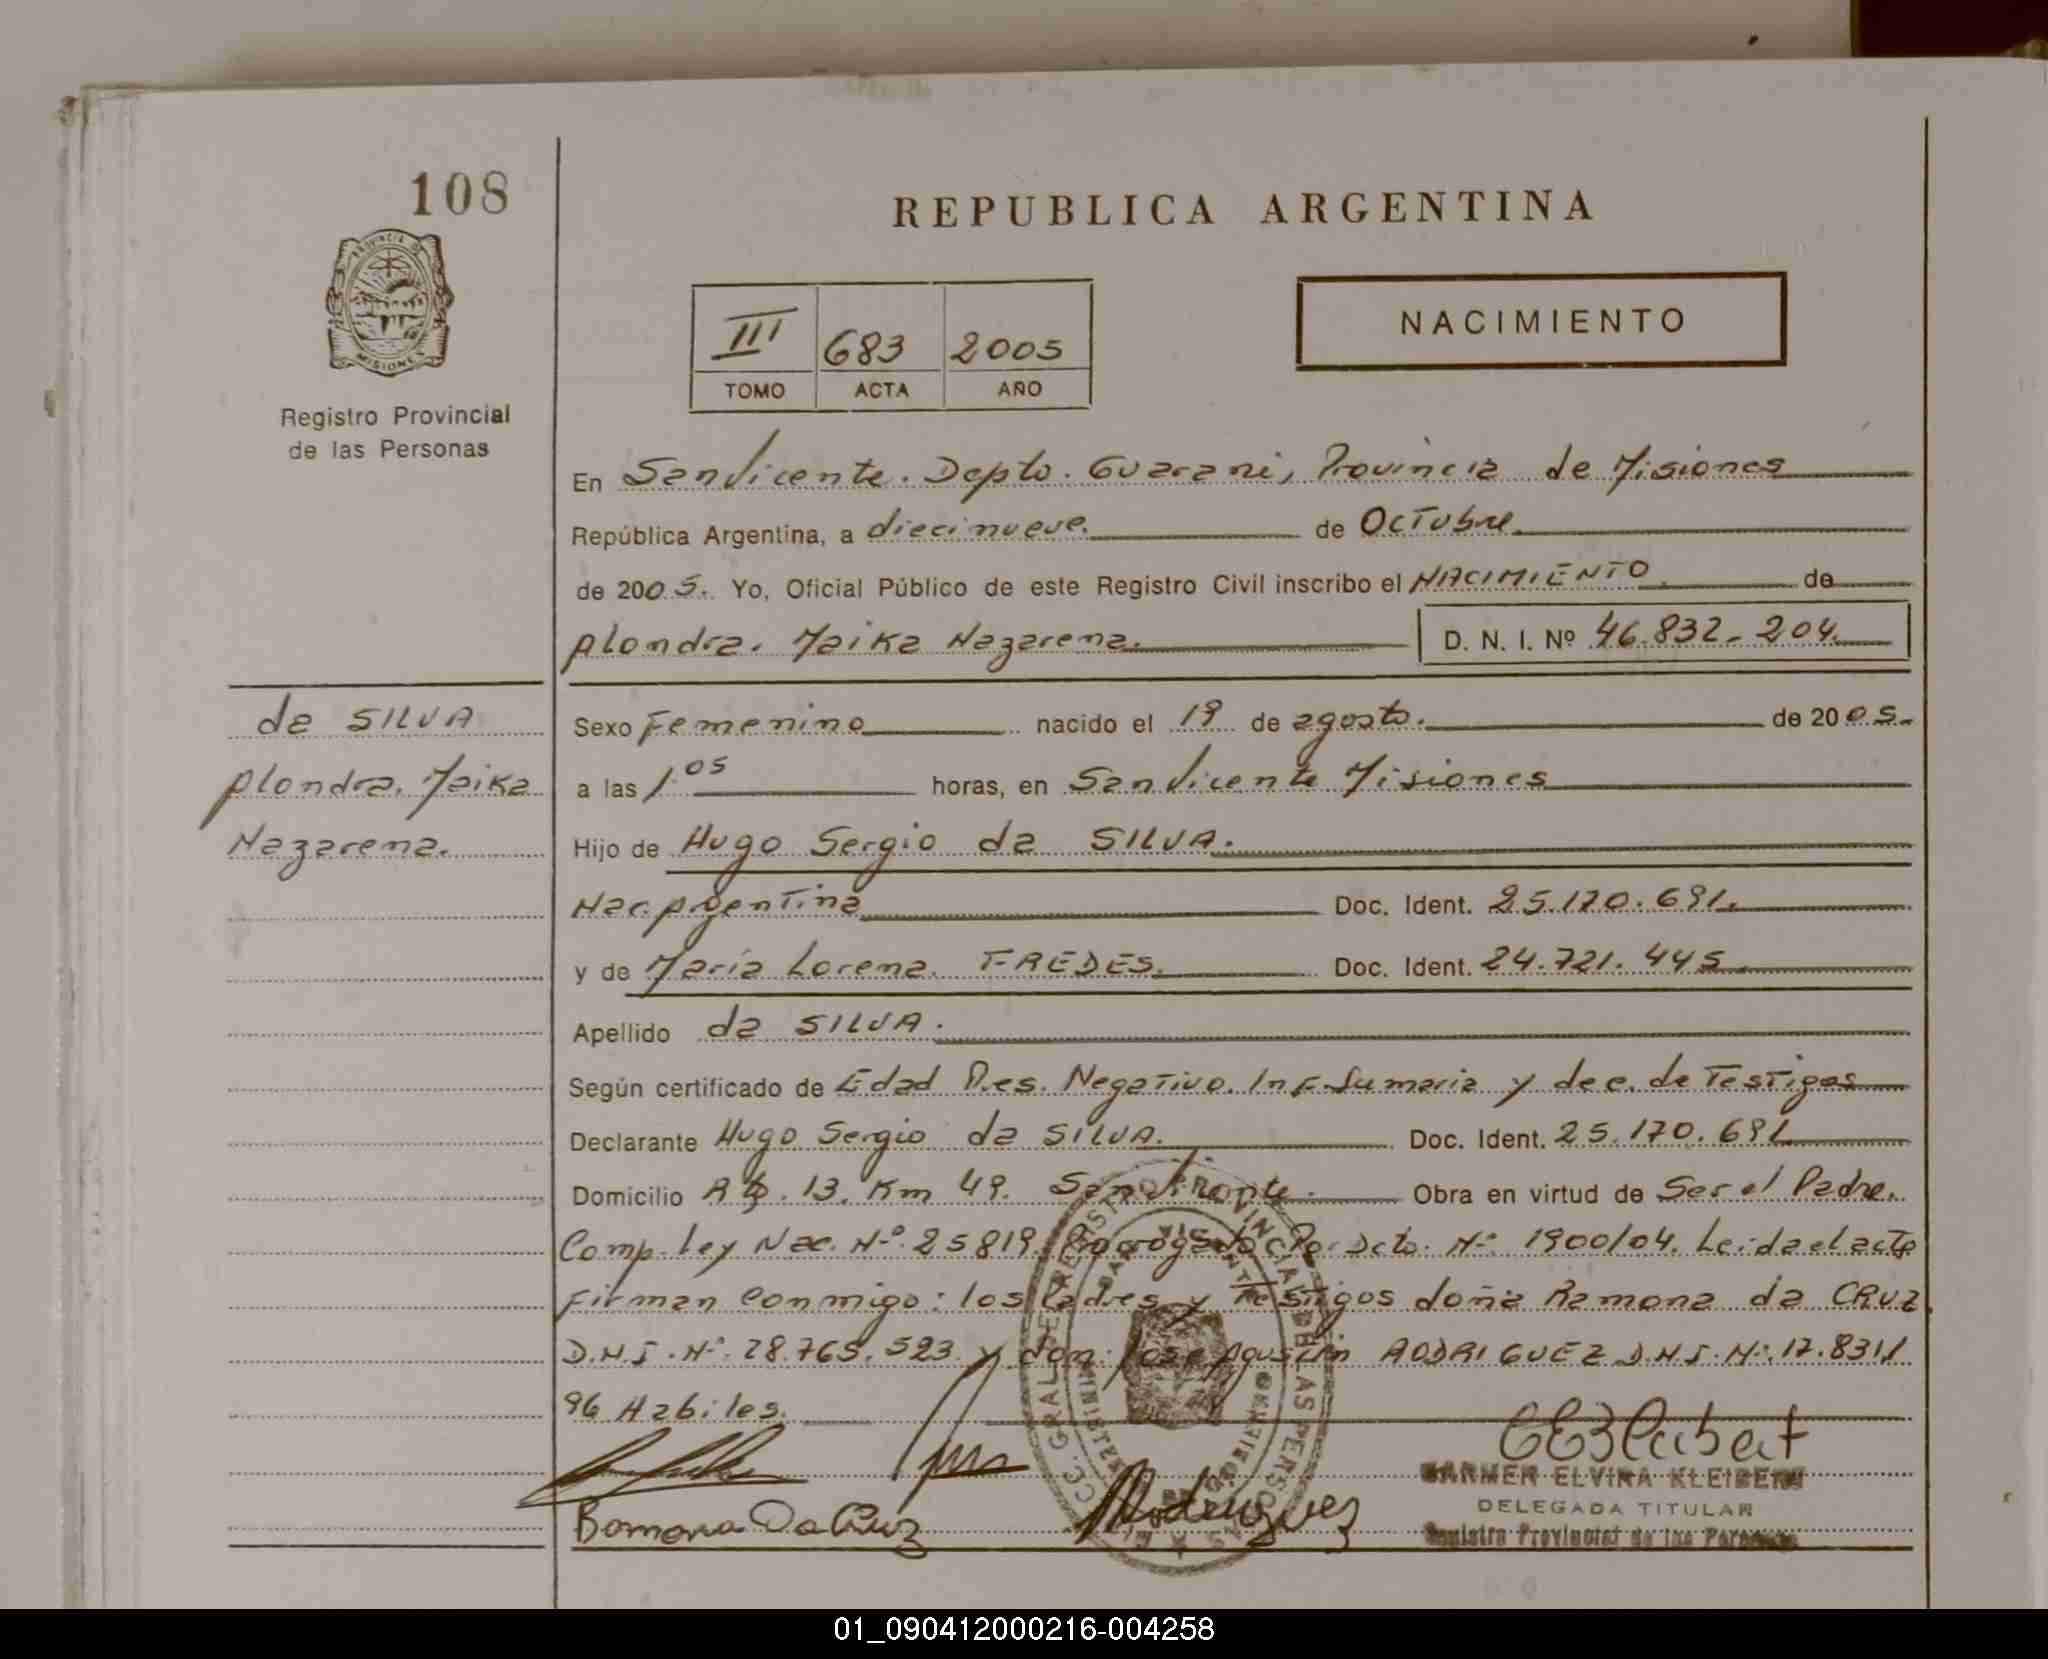 108
REPUBLICA ARGENTINA
PROVINCIA DE
MISIONES
Registro Provincial
de las Personas
III 683 2005
TOMO ACTA AÑO
NACIMIENTO
En San Vicente. Depto. Guarani, Provincia de Misiones
República Argentina, a diecinueve. de Octubre.
de 2005. Yo, Oficial Público de este Registro Civil inscribo el NACIMIENTO. de
Alondra. Maika Nazarena. D. N. I. Nº 46.832.204.
da SILVA
Alondra. Maika
Nazarena.
Sexo Femenino nacido el 19 de agosto. de 2005.
a las 1.05 horas, en San Vicente Misiones
Hijo de Hugo Sergio da SILVA.
Nac. Argentina Doc. Ident. 25.170.691.
y de María Lorena. FREDES. Doc. Ident. 24.721.445.
Apellido da SILVA.
Según certificado de Edad Pres. Negativo. Inf. Sumaria y dec. de Testigos
Declarante Hugo Sergio da SILVA. Doc. Ident. 25.170.691
Domicilio 13. Km 49. San Vicente. Obra en virtud de Ser el Padre.
Comp. Ley Nac. Nº 25819. Prorrogado Por Dcto. Nº 1900/04. Leida el acta
Firman Conmigo: los Padres y Testigos doña Ramona da CRUZ
D.N.I. Nº 28.765.523 y don Jose Agustin RODRIGUEZ D.N.I. Nº 17.831.1
96 Habiles.
Ramona Da Cruz
Rodriguez
CARMEN ELVIRA
DELEGADA TITULAR
Registro Provincial de las Personas
01_090412000216-004258